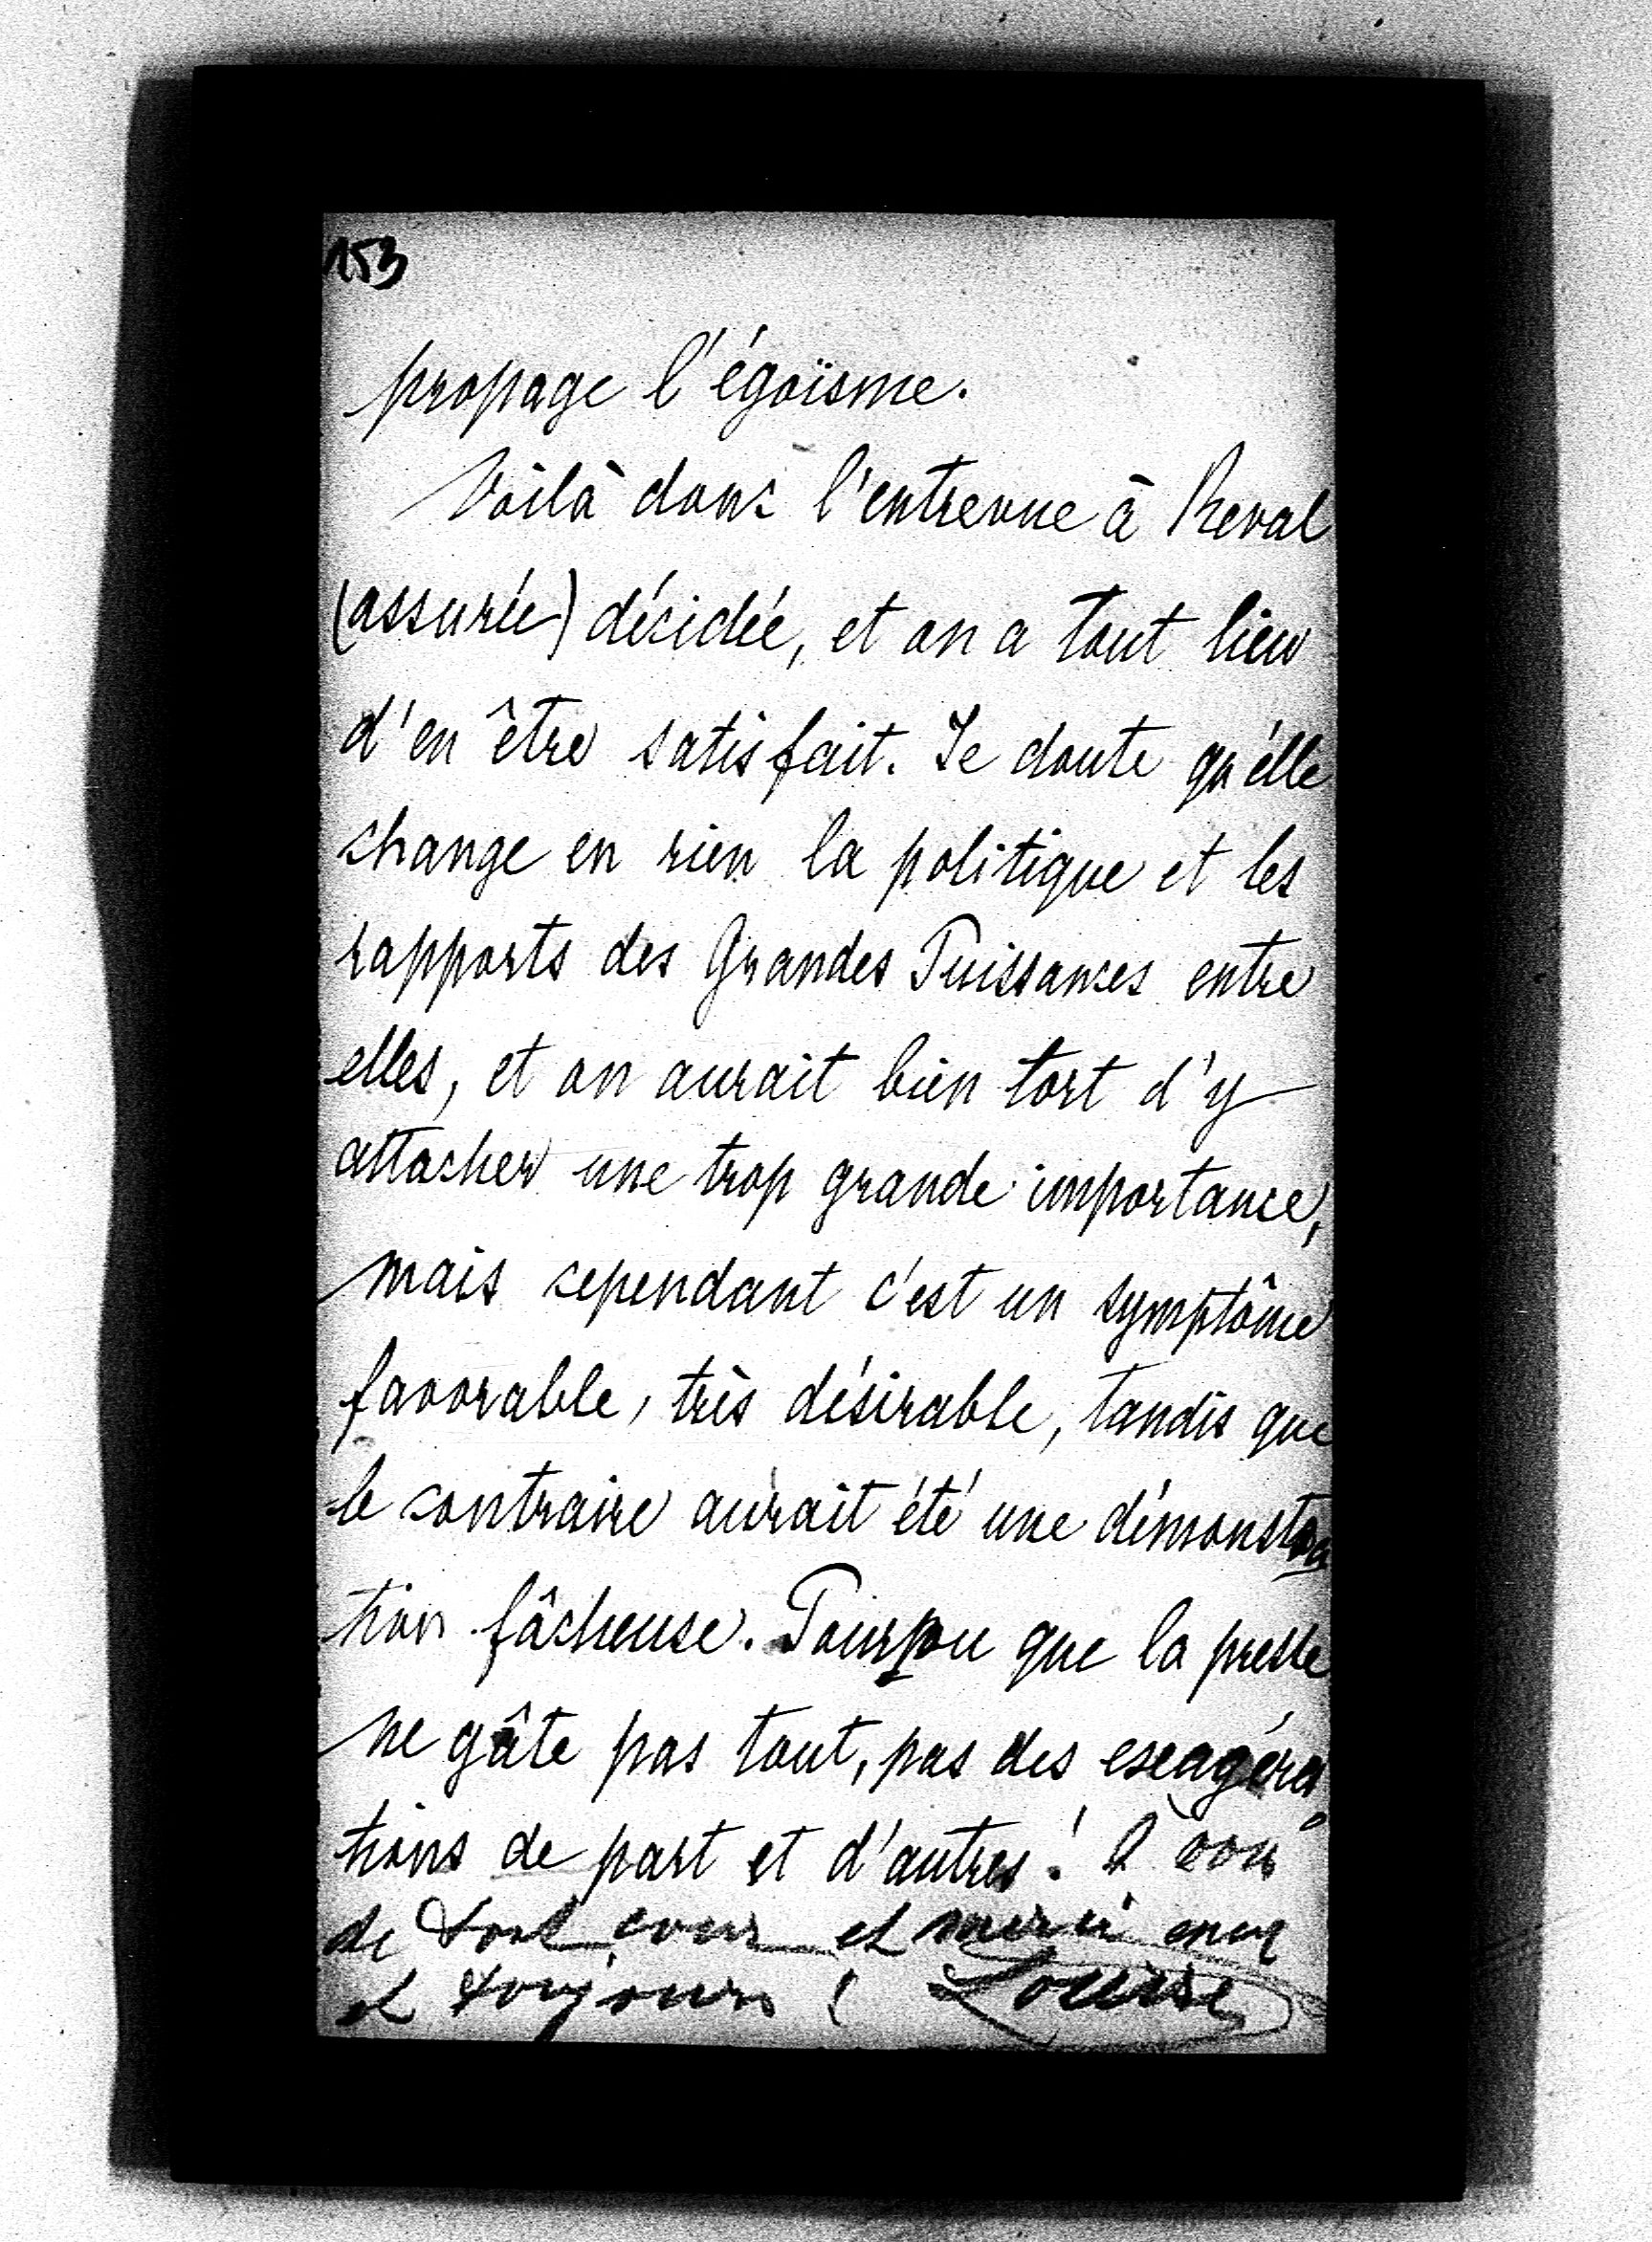 153
propage l'égoïsme.
Voilà donc l'entrevue à Reval
(assurée) décidée, et on a tout lieu
d'en être satisfait. Je doute qu'elle
change en rien la politique et les
rapports des Grandes Puissances entre
elles, et on aurait bien tort d'y
attacher une trop grande importance,
mais cependant c'est un symptôme
favorable, très désirable, tandis que
le contraire aurait été une démonstra
tion fâcheuse. Pourpou que la presse
ne gâte pas tout, pas des exagéra
tions de part et d'autres! À vous
de tout coeur et merci encor
et toujours! Louise